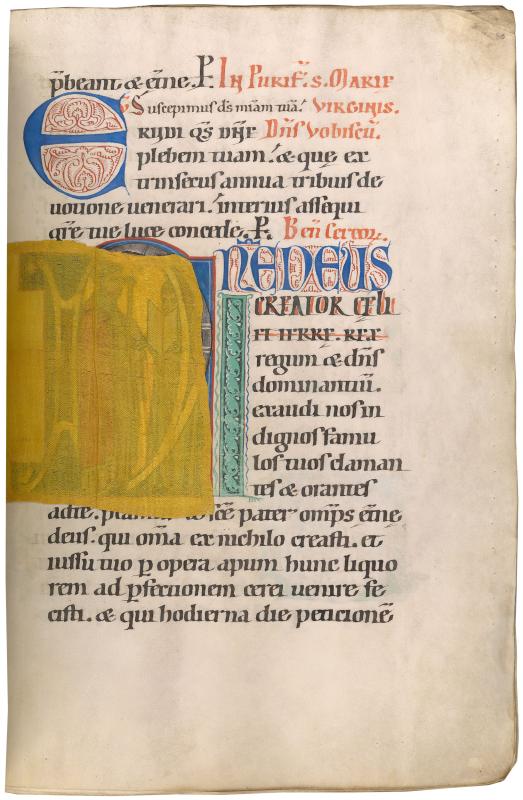 p̄beant & et̄ne. P. IN PURIF̄. S. MARIE
Suscepimus ds̄ miām tuā. VIRGINIS.
ERUDI QS̄ DN̄E DN̄S VOBISCŪ.
plebem tuam. & que ex
trinsecus annua tribuis de
uotione uenerari. interius assequi
gr̄e tue luce concede. P. Ben̄ Cereor.
N̄E DEUS
CREATOR CELI
ET TERRE. REX
regum & dn̄s
dominantiū.
exaudi nos in
dignos famu
los tuos claman
tes & orantes
adte. sc̄e pater omp̄s et̄ne
deus. qui om̄a ex nichilo creasti. et
iussu tuo ꝑ opera apum hunc liquo
rem ad ꝑfectionem cerei uenire fe
cisti. & qui hodierna die peticionē